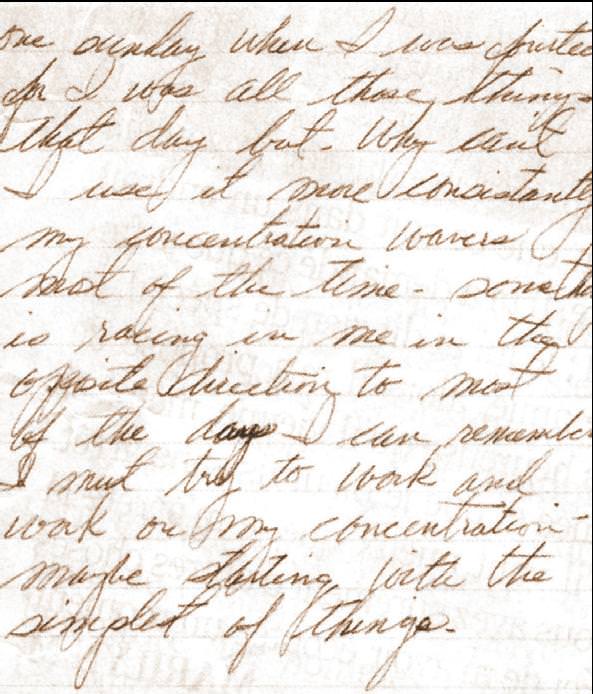 one sunday when I was
for I was all those things
that day but. Why can't
I use it more consistantly
my concentration wavers
most of the time - someth
is racing in me in the
oppisite direction to most
of the days I can remember
I must try to work and
work on my concentration -
maybe starting with the
simplest of things.